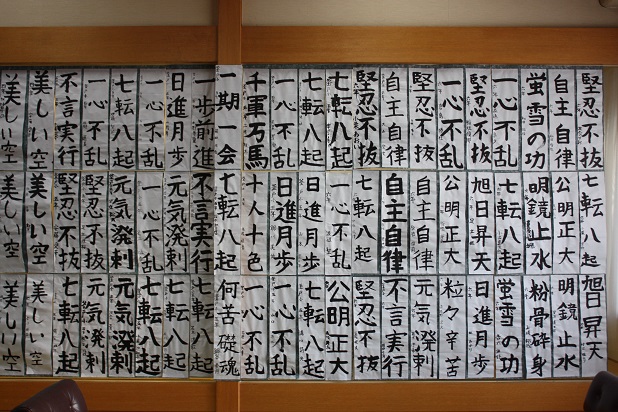 堅忍不抜
自主自律
螢雪の功
一心不乱
堅忍不抜
一心不乱
堅忍不抜
自主自律
堅忍不抜
七転八起
七転八起
一心不乱
千軍万馬
一期一会
一歩前進
日進月歩
一心不乱
七転八起
一心不乱
不言実行
美しい空
美しい空
七転八起
公明正大
明鏡止水
七転八起
旭日昇天
公明正大
自主自律
自主自律
七転八起
一心不乱
日進月歩
日進月歩
十人十色
七転八起
不言実行
元気溌剌
一心不乱
元気溌剌
堅忍不抜
堅忍不抜
美しい空
美しい空
旭日昇天
明鏡止水
粉骨砕身
螢雪の功
日進月歩
粒々辛苦
元気溌剌
不言実行
堅忍不抜
公明正大
七転八起
一心不乱
一心不乱
何苦礎魂
七転八起
七転八起
七転八起
元気溌剌
元気溌剌
七転八起
美しい空
美しい空